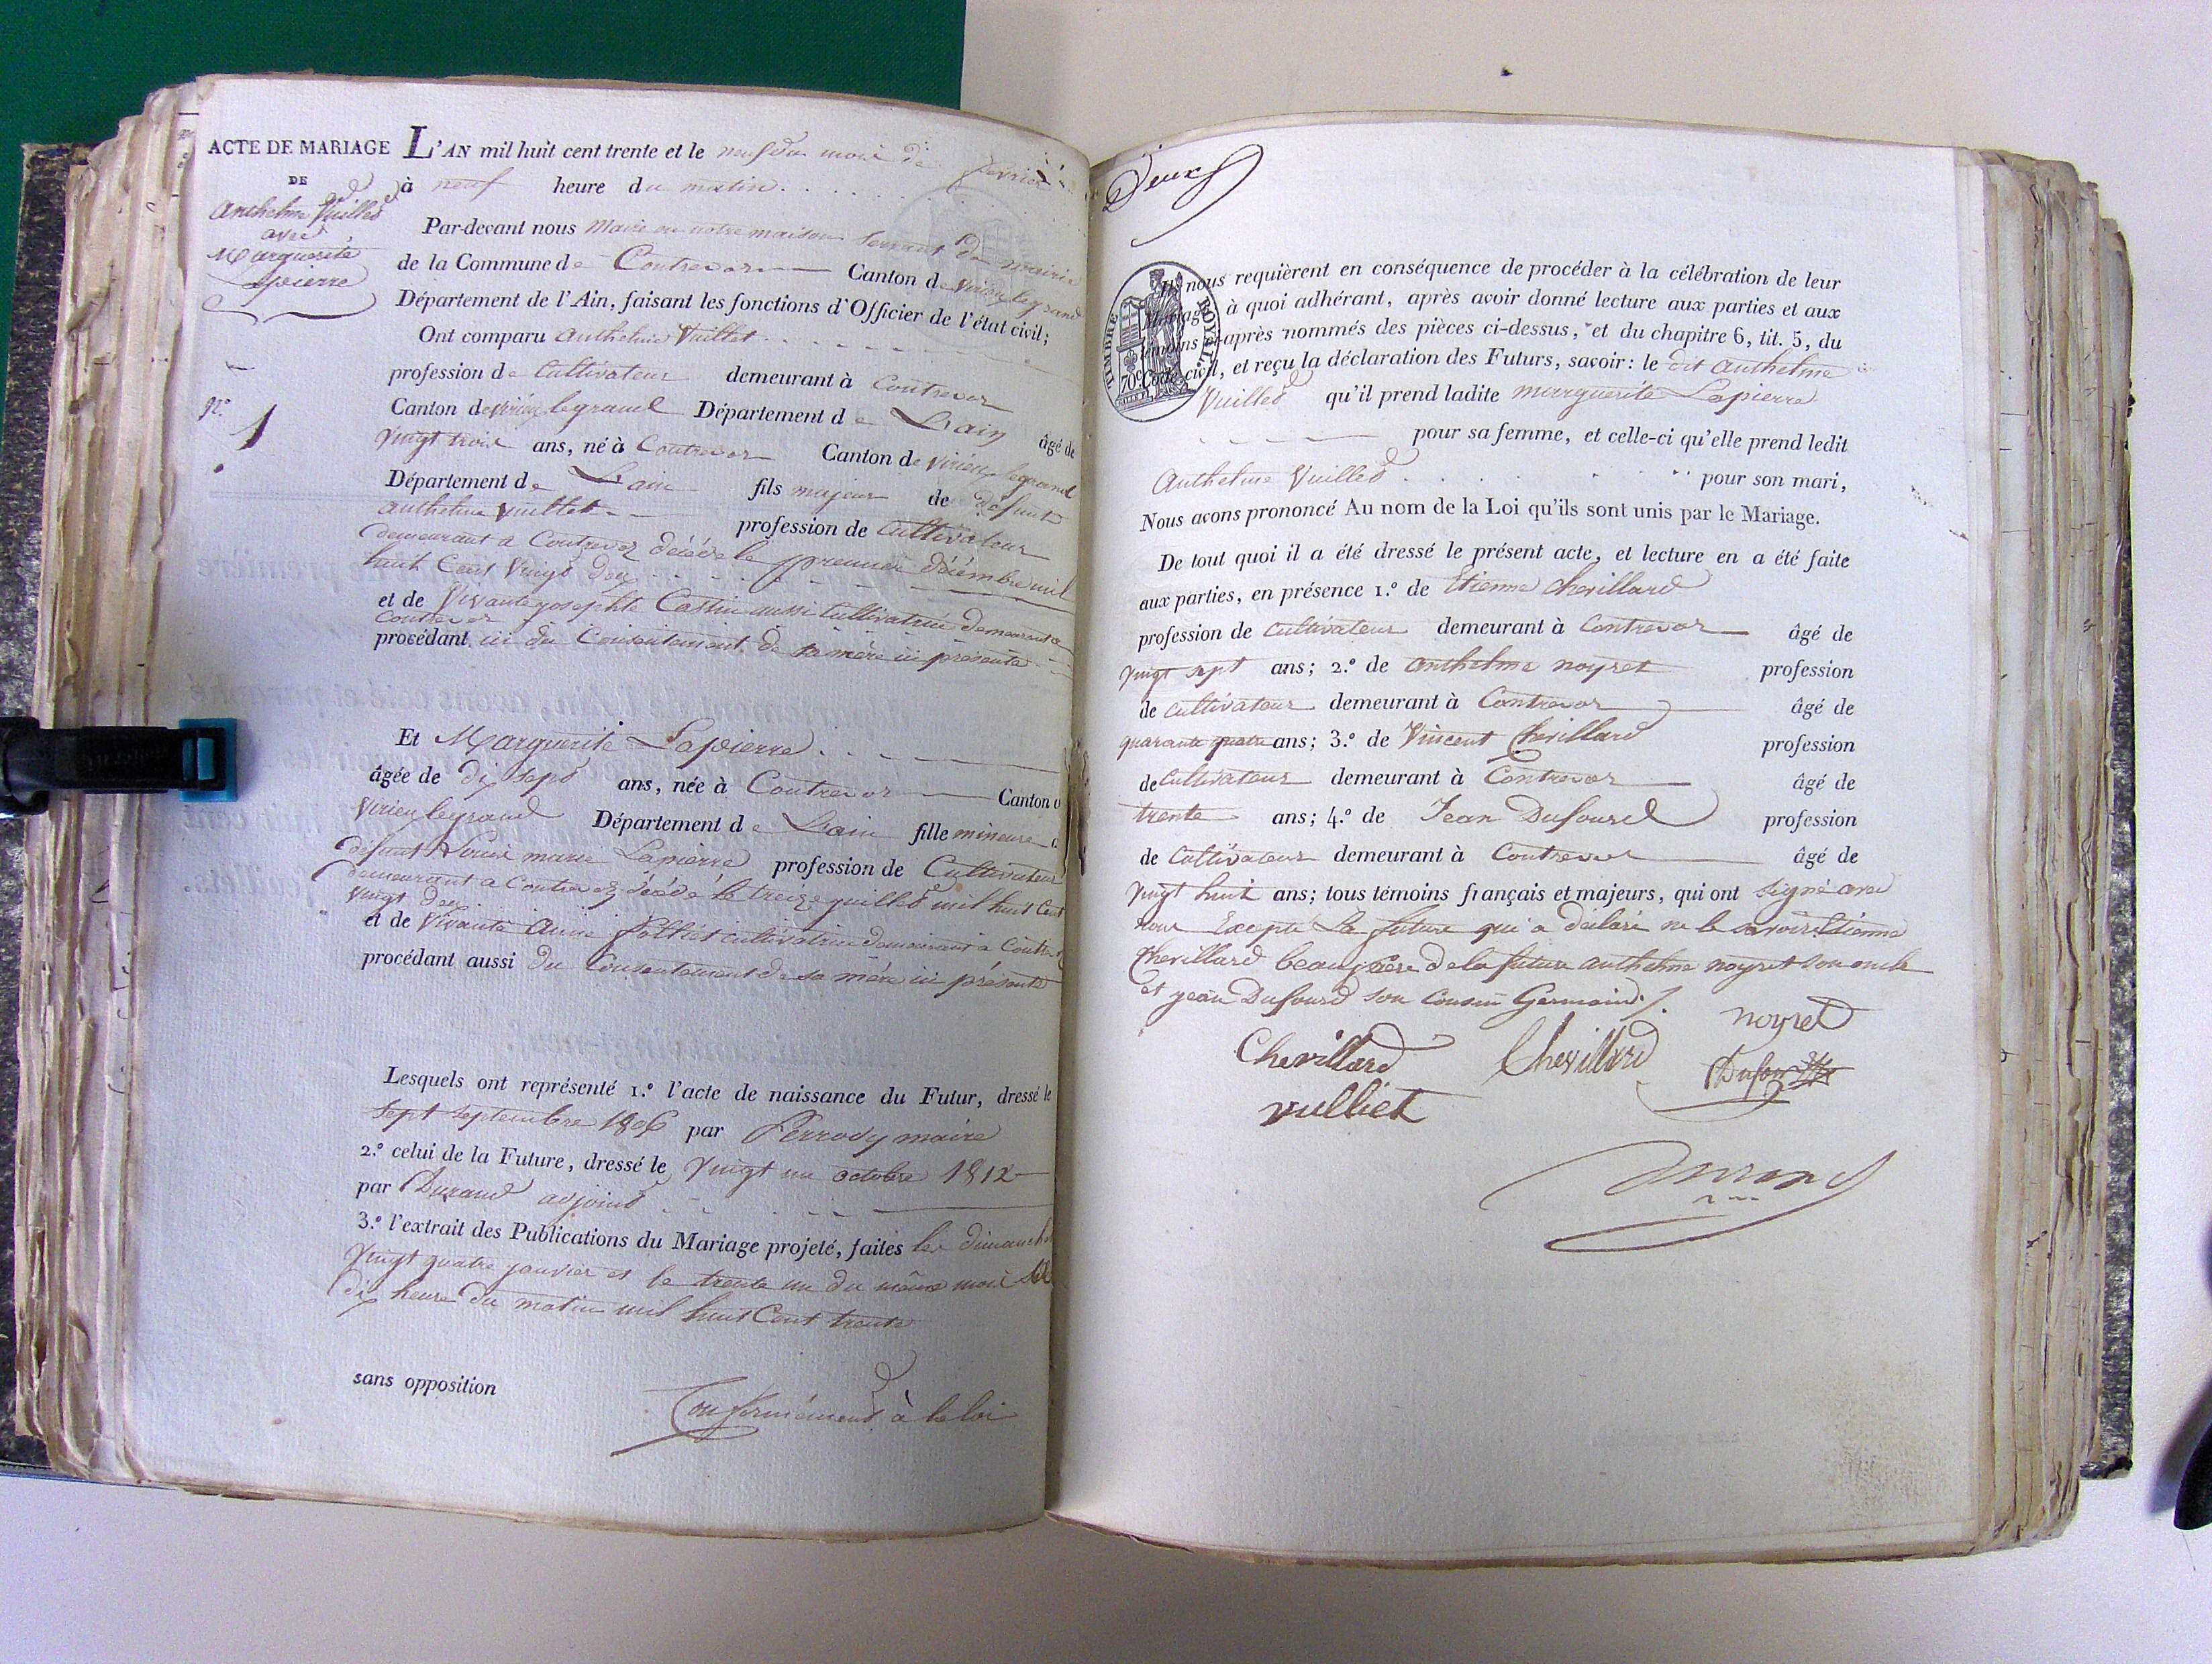 ACTE DE MARIAGE
DE
Anthelme Vuillet
avec
Marguerite
Lapierre
N.º 1
L'AN mil huit cent trente et le neuf du mois de février
à neuf heure du matin
Par-devant nous Maire en notre maison servant de mairie
de la Commune de Contrevoz Canton de virieu legrand
Département de l'Ain, faisant les fonctions d'Officier de l'état civil;
Ont comparu anthelme Vuillet
profession de Cultivateur demeurant à Contrevoz
Canton de virieu legrand Département de Lain âgé de
Vingt trois ans, né à Contrevoz Canton de virieu legrand
Département de Lain fils majeur de défunt
anthelme vuillet profession de Cultivateur
demeurant a Contrevoz décédé le premier décembre mil
huit Cent Vingt deux
et de Vivante josephte Castin aussi Cultivatrice demeurant a
Contrevoz
procédant ici du Consentement de sa mère ici présente
Et Marguerite Lapierre
âgée de dix sept ans, née à Contrevoz Canton
Virieu legrand Département de Lain fille mineure
défunt Louis marie Lapierre profession de Cultivateur
demeurant a Contrevoz décédé le treize juillet mil huit Cent
vingt deux
et de Vivante Anne cultivatrice demeurant a
procédant aussi du Consentement de sa mère ici présente
Lesquels ont représenté 1.º l'acte de naissance du Futur, dressé le
Sept septembre 1806 par Perrody maire
2.º celui de la Future, dressé le vingt un octobre 1812
par Durand adjoint
3.º l'extrait des Publications du Mariage projeté, faites les dimanche
Vingt quatre janvier et le trente un du même mois
dix heure du matin mil huit Cent trente
sans opposition
Conformément à la loi
Deux
TIMBRE ROYAL
70c
Ils nous requièrent en conséquence de procéder à la célébration de leur
Mariage, à quoi adhérant, après avoir donné lecture aux parties et aux
témoins ci-après nommés des pièces ci-dessus, et du chapitre 6, tit. 5, du
Code civil, et reçu la déclaration des Futurs, savoir: le dit anthelme
Vuillet qu'il prend ladite marguerite Lapierre
pour sa femme, et celle-ci qu'elle prend ledit
Anthelme Vuillet pour son mari,
Nous avons prononcé Au nom de la Loi qu'ils sont unis par le Mariage.
De tout quoi il a été dressé le présent acte, et lecture en a été faite
aux parties, en présence 1.º de Etienne Chevillard
profession de Cultivateur demeurant à Contrevoz âgé de
vingt sept ans; 2.º de anthelme noyret profession
de Cultivateur demeurant à Contrevoz âgé de
quarante quatre ans; 3.º de Vincent Chevillard profession
de Cultivateur demeurant à Contrevoz âgé de
trente ans; 4.º de Jean Dufourd profession
de Cultivateur demeurant à Contrevoz âgé de
Vingt huit ans; tous témoins français et majeurs, qui ont signé avec
nous Excepté La future qui a déclaré ne le savoir Etienne
Chevillard beaufrère de la future anthelme noyret son oncle
et jean Dufourd son Cousin Germain.
noyret
Chevillard
Chevillard
Dufour
vulliet
Durand